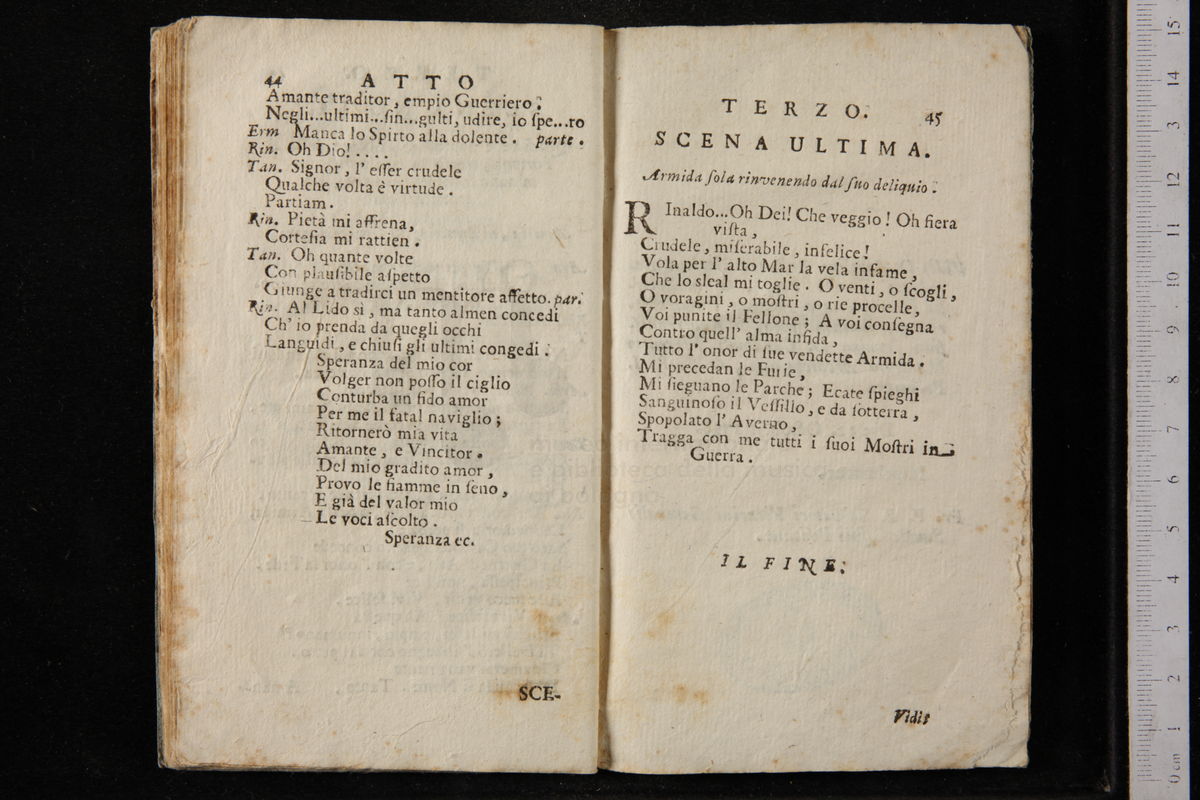 44 ATTO
Amante traditor, empio Guerriero;
Negli...ultimi...ſin...gulti, udire, io ſpe...ro
Erm Manca lo Spirto alla dolente. parte.
Rin. Oh Dio!....
Tan. Signor, l' eſſer crudele
Qualche volta è virtude.
Partiam.
Rin. Pietà mi affrena,
Corteſia mi rattien.
Tan. Oh quante volte
Con plauſibile aſpetto
Giunge a tradirci un mentitore affetto. par.
Rin. Al Lido si, ma tanto almen concedi
Ch' io prenda da quegli occhi
Languidi, e chiuſi gli ultimi congedi.
Speranza del mio cor
Volger non poſſo il ciglio
Conturba un fido amor
Per me il fatal naviglio;
Ritornerò mia vita
Amante, e Vincitor.
Del mio gradito amor,
Provo le fiamme in ſeno,
E già del valor mio
Le voci aſcolto.
Speranza ec.
SCE-
TERZO. 45
SCENA ULTIMA.
Armida ſola rinvenendo dal ſuo deliquio.
RInaldo...Oh Dei! Che veggio! Oh fiera
viſta,
Crudele, miſerabile, infelice!
Vola per l' alto Mar la vela infame,
Che lo sleal mi toglie. O venti, o ſcogli,
O voragini, o moſtri, o rie procelle,
Voi punite il Fellone; A voi conſegna
Contro quell' alma infida,
Tutto l' onor di ſue vendette Armida.
Mi precedan le Furie,
Mi ſieguano le Parche; Ecate ſpieghi
Sanguinoſo il Veſſillo, e da ſotterra,
Spopolato l' Averno,
Tragga con me tutti i ſuoi Moſtri in
Guerra.
IL FINE.
Vidit
0 cm 1 2 3 4 5 6 7 8 9 10 11 12 13 14 15